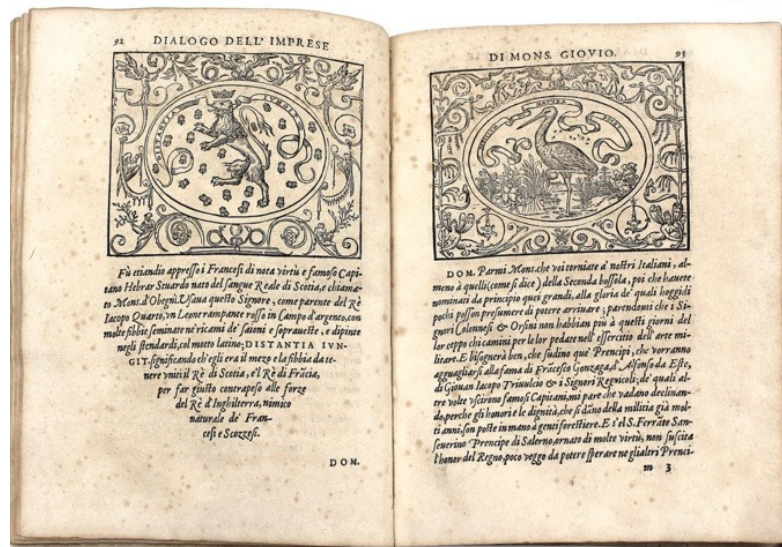 92 DIALOGO DELL' IMPRESE
DISTANTIA IVNGIT
Fù etiandio appresso i Francesi di nota virtù e famoso Capi-
tano Hebrar Stuardo nato del sangue Reale di Scotia, e chiama-
to Mons. d'Obegnì. Usaua questo Signore, come parente del Rè
Iacopo Quarto, vn Leone rampante rosso in Campo d'argento, con
molte fibbie seminate ne' ricami de' saioni e sopraueste, e dipinte
negli stendardi, col motto latino; DISTANTIA IVN-
GIT. significando ch'egli era il mezo e la fibbia da te-
nere vniti il Rè di Scotia, e'l Rè di Frãcia,
per far giusto contrapeso alle forze
del Rè d'Inghilterra, nimico
naturale de' Fran-
cesi e Scozzesi.
DOM.
DI MONS. GIOVIO. 93
NATVRA
DOM. Parmi Mons. che voi torniate a' nostri Italiani, al-
meno à quelli (come si dice) della Seconda bossola, poi che hauete
nominati da principio quei grandi, alla gloria de' quali hoggidi
pochi posson presumere di potere arriuare; parendomi che i Si-
gnori Colonnesi & Orsini non habbian più à questi giorni del
lor ceppo chi camini per le lor pedate nell'essercitio dell'arte mi-
litare. E bisognerà ben, che sudino que' Prencipi, che vorranno
agguagliarsi alla fama di Frãcesco Gonzaga, d'Alfonso da Este,
di Giouan Iacopo Triuulcio & i Signori Regnicoli; de' quali al-
tre volte vscirono famosi Capitani, mi pare che vadano declinan-
do, perche gli honori e le dignità, che si dãno della militia già mol-
ti anni, son poste in mano à genti forestiere. E s'el S. Ferrãto San-
seuerino Prencipe di Salerno, ornato di molte virtù, non suscita
l'honor del Regno, poco veggo da potere sperare ne gli altri Prenci-
m 3